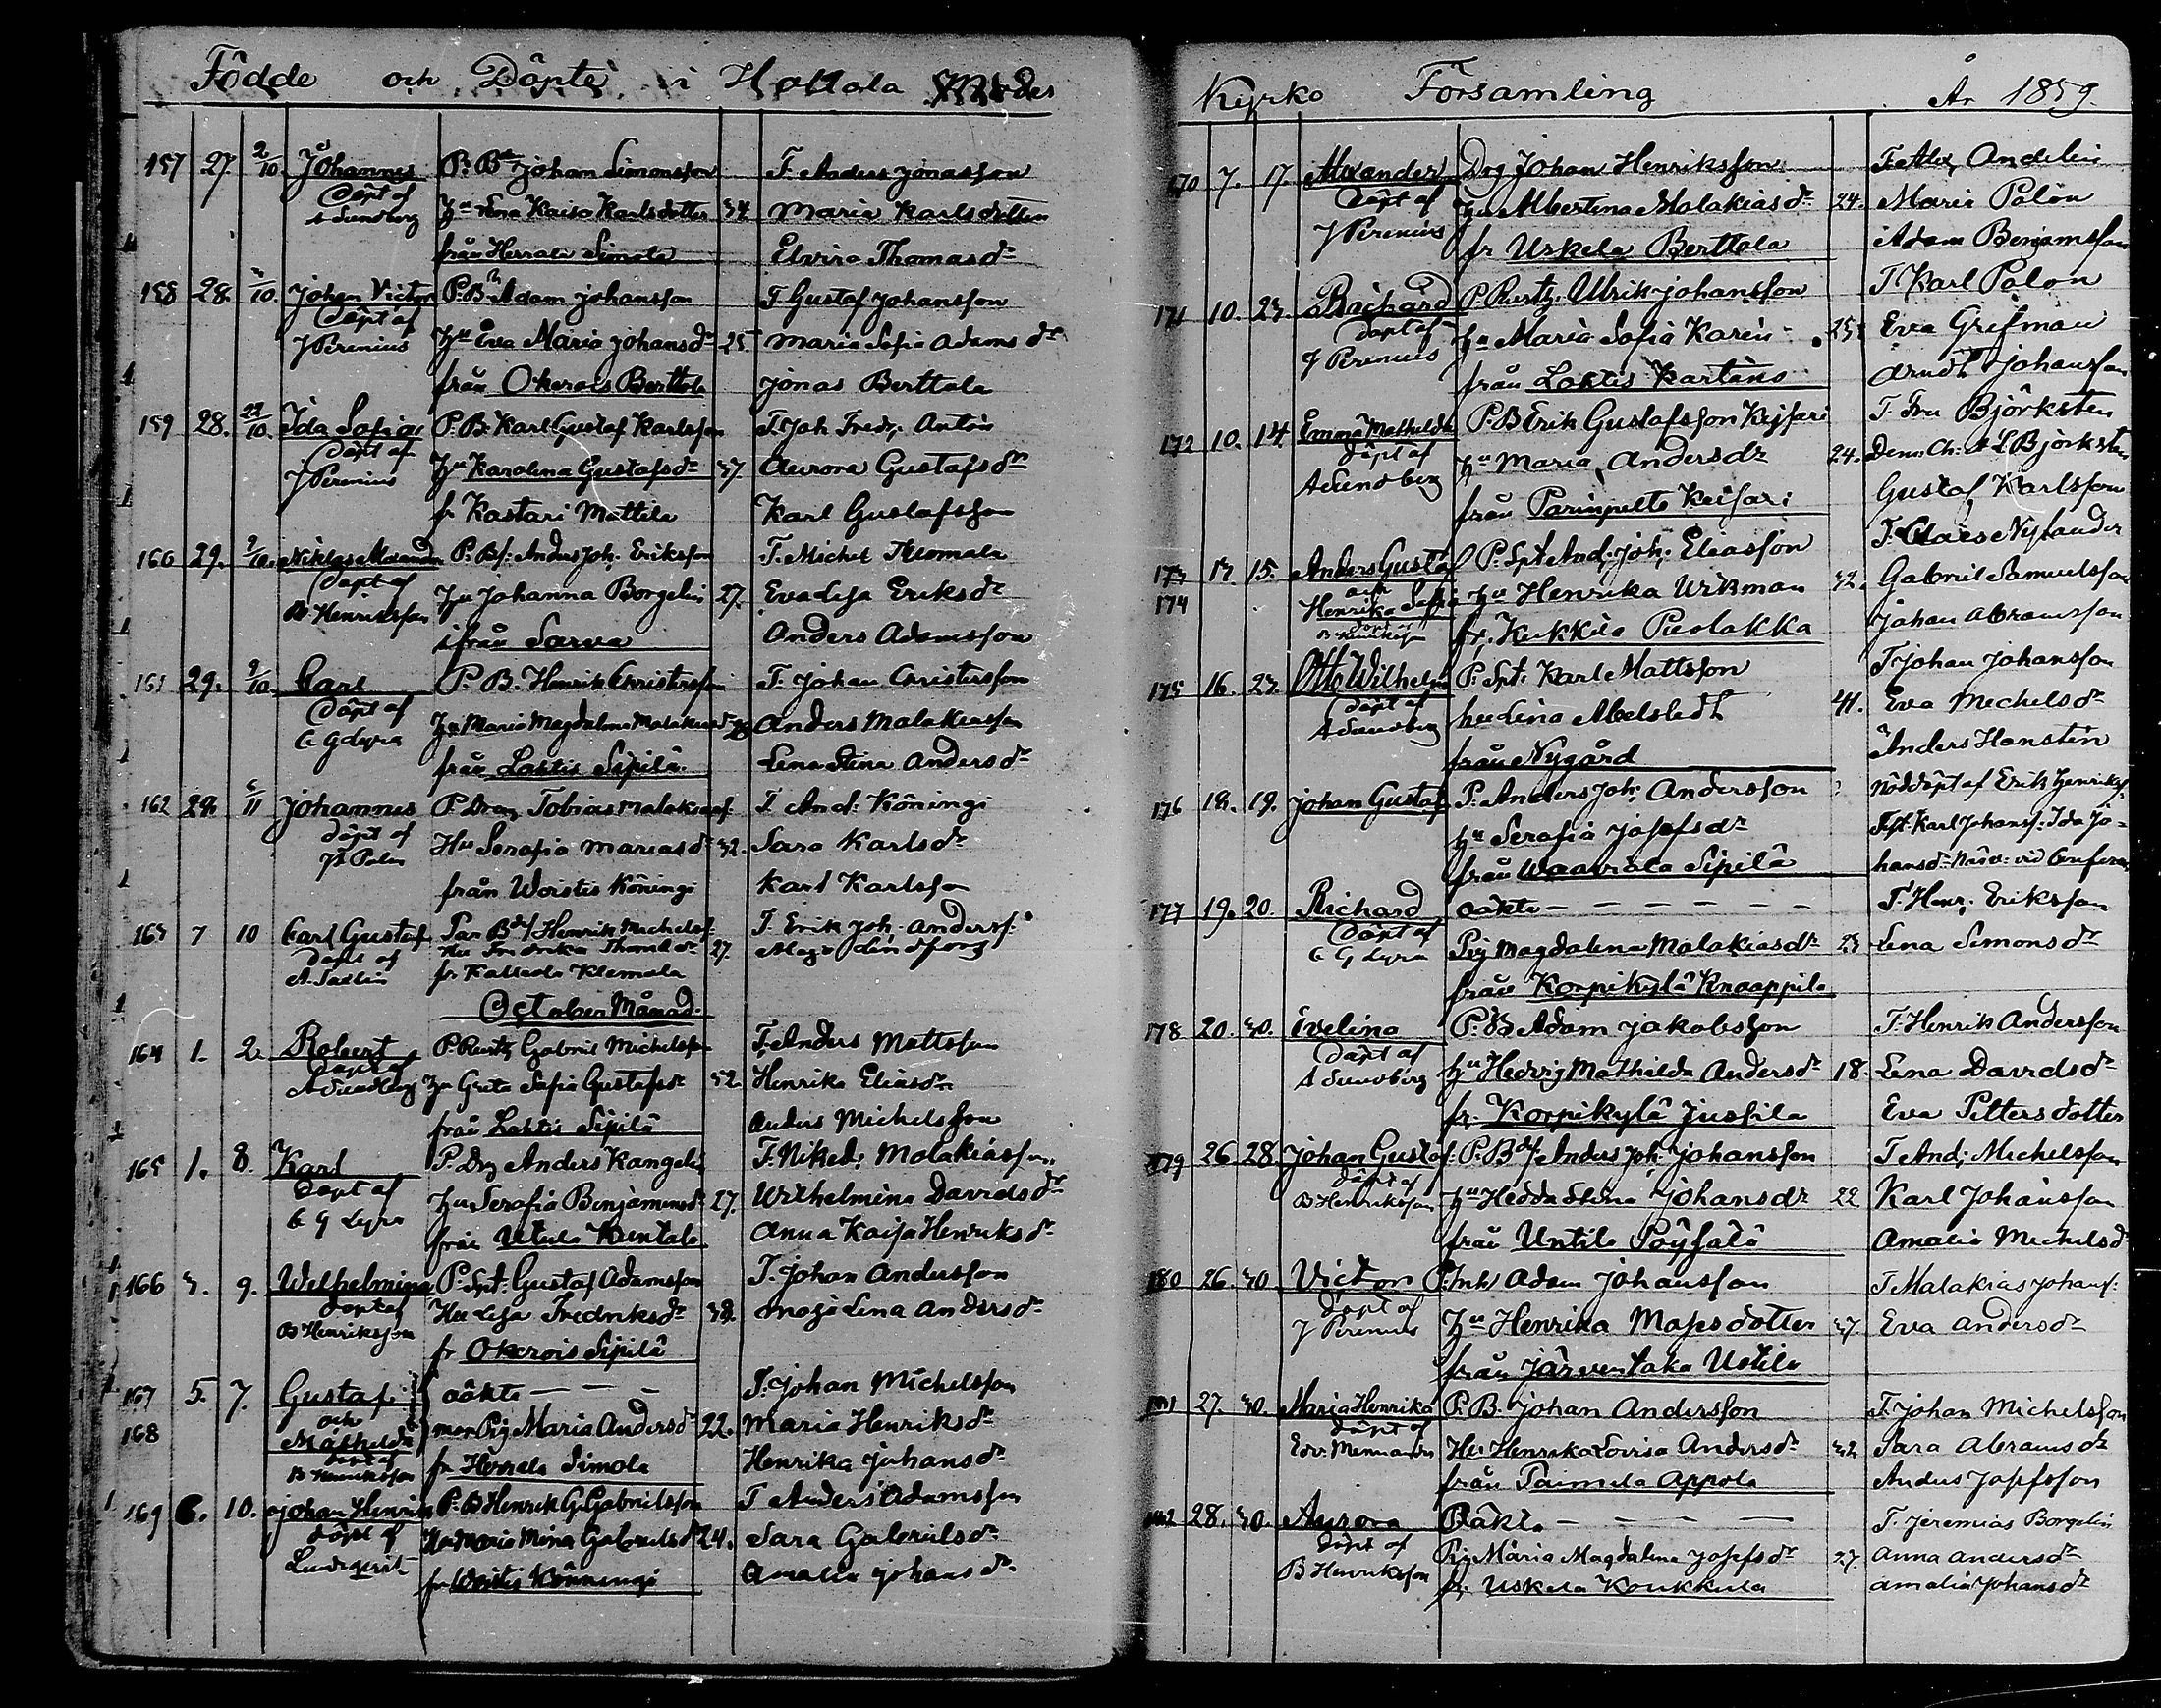 Födde och Döpte i Hollola Moder
157 27. 2/10 Johannes P. Bd Johan Simonsson T. Anders Jonasson
Döpt af A Sundberg Hu Lena Kaisa Karlsdotter 34. Maria Karlsdotter
från Herrala Simola Elvira Thomasdr
158 28. /10. Johan Victor P. Bd Adam Johansson T. Gustaf Johansson
Döpt af J Perenius Hu Eva Maria Johansdr 25. Maria Sofia Adamsdr
från Okerois Berttola Jonas Berttala
159 28. 22/10. Ida Sofia P. B. Karl Gustaf Karlsson T. Joh Fredr. Antin
Döpt af J Perenius Hu Karolina Gustafsdr 37. Aurora Gustafsdr
fr Kastari Mattila Karl Gustafsson
160 29. 2/10. Niklas Alexander P. Bs: Anders Joh. Eriksson T. Michel Klomala
Döpt af B Henriksson Hu Johanna Borgelin 27. Eva Lisa Eriksdr
ifrån Sarva Anders Adamsson
161 29. 9/10. Carl P. B. Henrik Christersson T. Johan Christersson
Döpt af C G Lyra Hu Maria Magdalena Malakiasdr Anders Malakiasson
från Lahtis Sipilä Lena Stina Andersdr
162 29. 6/11 Johannes P. Drg Tobias Malakiasf T. And: Köningi
Döpt af Hu Serafia Mariasdr 32. Sara Karlsdr
från Woistis Köningi Karl Karlsson
163 7 10 Carl Gustaf Par Bdf Henrik Michelsf. T. Erik Joh. Andersf:
Döpt af A. Sadlin Hu Fredrika Thomasdr 27. Maja Lindfors
fr Kalliola Klemola
October Månad.
164 1. 2. Robert P. Rusth. Gabriel Michelsson T. Anders Mattsson
Döpt af A Sundberg Hu Greta Sofia Gustafsdr 32. Henrika Eliasdr
från Lahtis Sipilä Anders Michelsson
165 1. 8. Karl P. Drg Anders Kangelin T. Niked: Malakiasson
Döpt af C G Lyra Hu Serafia Benjaminsdr 27. Wilhelmina Davidsdr
från Utula Kuntala Anna Kaisa Henriksdr
166 3. 9. Wilhelmina P. Spt. Gustaf Adamsson T. Johan Andersson
Döpt af B Henriksson Hu Lisa Fredriksdr 38. Maja Lena Andersdr
fr Okerois Sipilä
167 5. 7. Gustaf oäkta — — — T. Johan Michelsson
168 och Mathilda mor Pig Maria Andersdr 22. Maria Henriksdr
Döpt af B Henriksson fr Herrala Simola Henrika Johansdr
169 6. 10. Johan Henrik P. B Henrik G. Gabrielsson T Anders Adamsson
Döpt af Lindqvist Hu Maria Mina Gabrielsdr 24. Sara Gabrielsdr
fr Woistis Könningi Amalia Johansdr
Kyrko Församling År 1859.
170 7. 17. Alexander Drg Johan Henriksson T. Alex Andelin
Döpt af J Perenius Hu Albertina Malakiasdr 24. Maria Palön
fr Uskela Berttola Adam Benjamsson
171 10. 23. Richard P. Rusth. Ulrik Johansson T Karl Palon
Döpt af J Perenius Hu Maria Sofia Karin 25. Eva Grefman
från Lahtis Kartano Arndt Johansson
172 10. 14 Emma Mathilda P. B Erik Gustafsson Keisari T. Fru Björksten
Döpt af A Sundberg Hu Maria Andersdr 24. Dem. Ch: & L Björksten
från Parinpelto Keisari Gustaf Karlsson
173 13. 15. Anders Gustaf P. Spt And. Joh. Eliasson T. Claes Nylander
174 och Henrika Sofia Hu Henrika Wikman 32. Gabriel Samuelsson
Döpt af B Henriksson fr. Kukkila Puolakka Johan Abramsson
175 16. 23. Otto Wilhelm P. Spt. Karl Mattsson T Johan Johansson
Döpt af A Sundberg hu Lina Abelstedt 41. Eva Mechelsdr
från Nygård Anders Hanstén
176 18. 19. Johan Gustaf P. Anders Joh. Andersson ? Nöddöpt af Erik Henriksf.
Hu Serafia Josefsdr Test: Karl Johansf: Ida Jo-
från Waawiala Sipilä hansdr. Närv: vid
177 19. 20. Richard oäkta — — — — — — T. Henr. Eriksson
Döpt af C G Lyra Pig Magdalena Malakiasdr 23 Lena Simonsdr
från Korpikylä Knaappila
178 20. 30. Evelina P. B Adam Jakobsson T. Henrik Andersson
Döpt af A Sundberg Hu Hedvig Mathilda Andersdr 18. Lena Davidsdr
fr. Korpikylä Jussila Eva Pettersdotter
179 26 28 Johan Gustaf: P. Bdf Anders Joh. Johansson T And; Michelsson
Döpt af B Henriksson Hu Hedda Stina Johansdr 22 Karl Johansson
från Untila Pöysälä Amalia Michelsdr
180 26. 30 Victor P. Inh. Adam Johansson T Malakias Johansf:
Döpt af J Perenius Hu Henrika Mapsdotter 37 Eva Andersdr
från Järventaka Uotila
181 27. 30. Maria Henrika P. B. Johan Andersson T. Johan Michelsson
Döpt af Edv. Mennander Hu Henrika Lovisa Andersdr 32 Sara Abramsdr
från Paimela Appola Anders Josefsson
182 28. 30. Aurora Oäkta — — — — T. Jeremias Borgelin
Döpt af B Henriksson Pig Maria Magdalena Josefsdr 27. Anna Andersdr
fr. Uskila Koukkula Amalia Johansdr